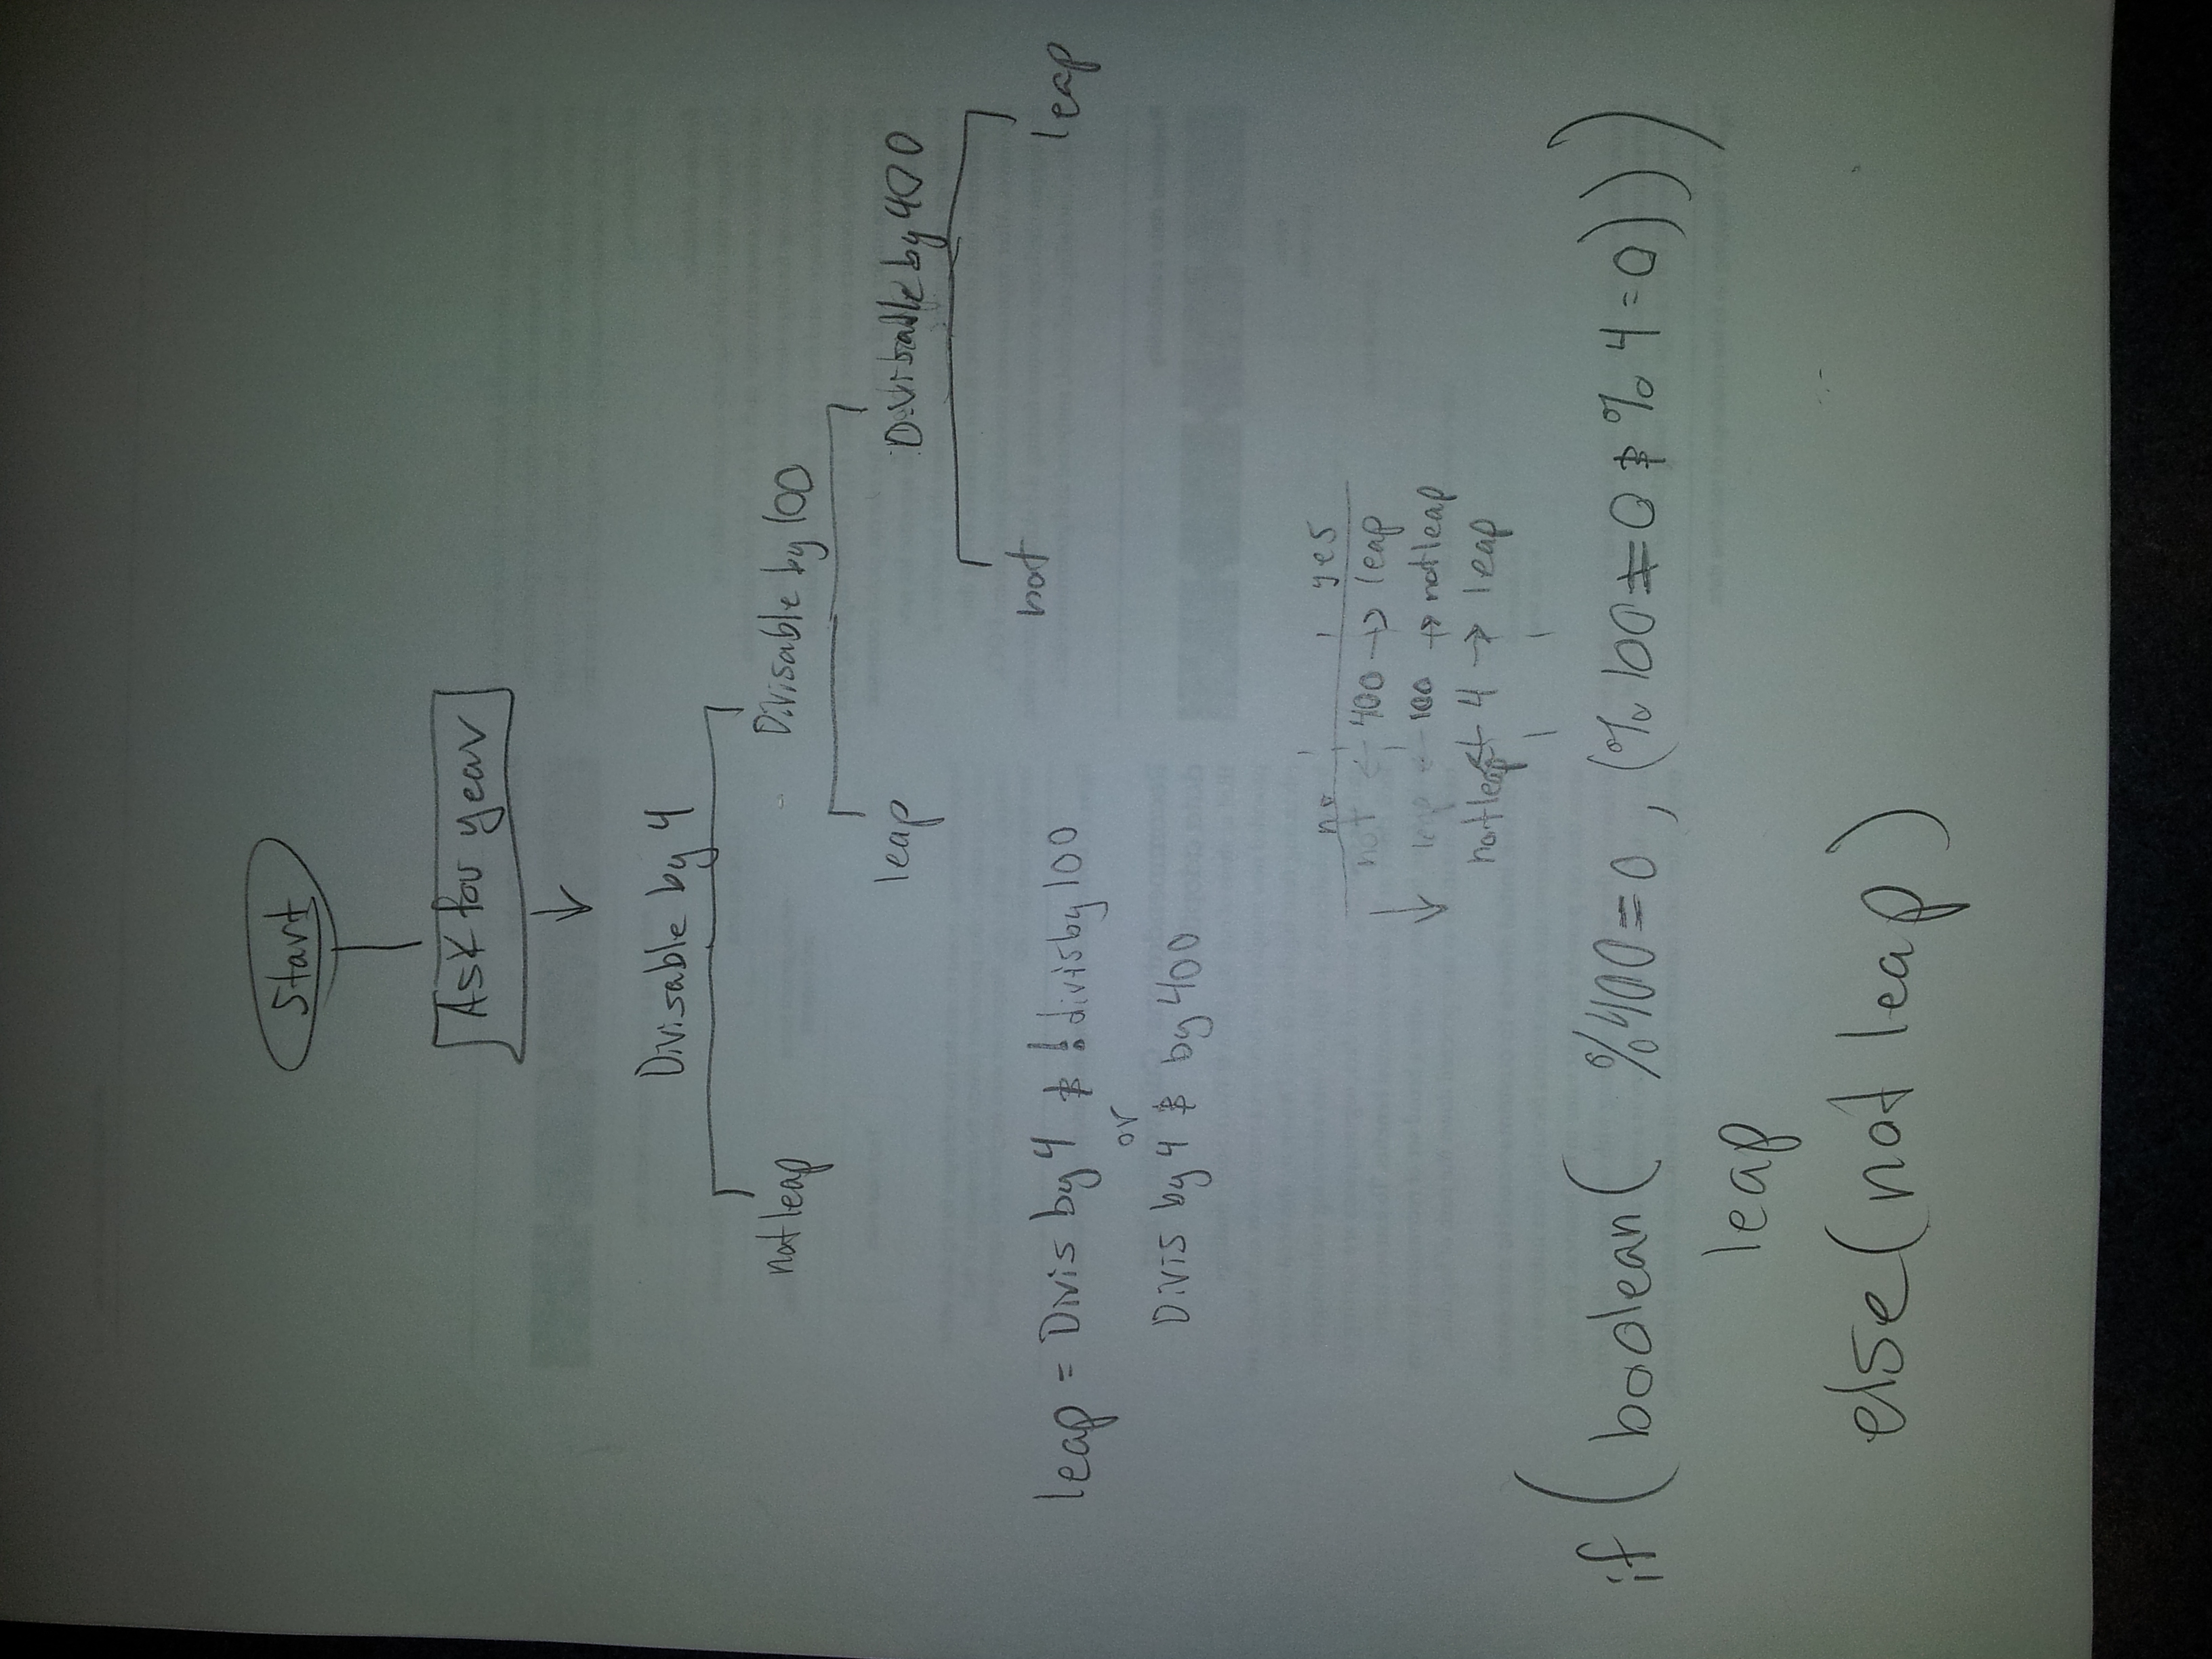 Start
Ask for year
Divisable by 4
not leap
Divisable by 100
leap
Divisable by 400
not
leap
leap = Divis by 4 & ! divis by 100
or
Divis by 4 & by 400
no yes
not ← 400 → leap
leap ← 100 → not leap
not leap ← 4 → leap
if ( boolean ( % 400 = 0 , (% 100 ≠ 0 & % 4 = 0 ) ) )
leap
else ( not leap )